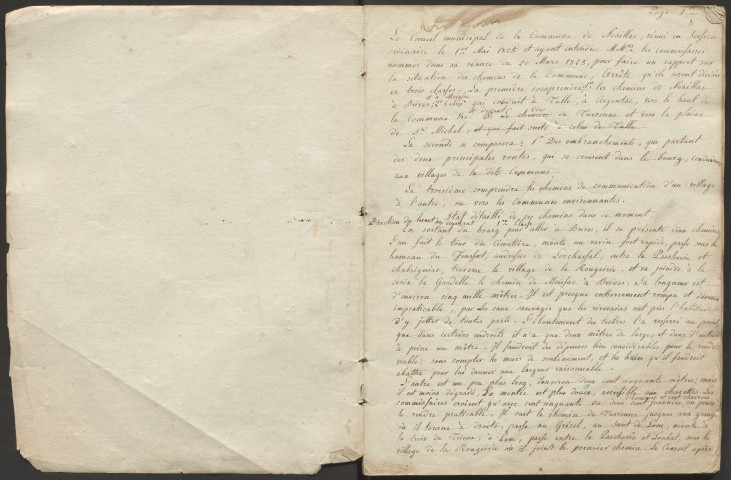 Page 1re
Le Conseil municipal de la Commune de Noaillac, réuni en Session
ordinaire le 1er Mai 1825 et ayant entendu MMrs les commissaires
nommés dans sa séance du 20 Mars 1825, pour faire un rapport sur
la situation des chemins de la Commune, Arrête qu'ils seront divisés
en trois classes. La première comprendra 1° les chemins de Noaillac
à Brives; 2° Celui qui conduit à Tulle, à Argentac, vers le haut de
la Commune &c. Le chemin de Turenne et vers la plaine
de St Michel, et que fait suite à celui de Tulle
La seconde se composera: 1° Des embranchements, qui partant
des deux principales routes, qui se croisent dans le bourg, conduisent
aux villages de la dite Commune.
La troisième comprendra les chemins de communication d'un village
à l'autre, ou vers les Communes environnantes.
Etat détaillé de ces chemins dans ce moment.
Direction du levant au couchant 1re Classe
En sortant du bourg pour aller à Brives, il se présente deux chemins
L'un fait le tour du cimetière, monte un ravin fort rapide, passe sous le
hameau du audessus de entre la Pascherie et
Chabrignac, traverse le village de la Rougerie, et va joindre à la
croix la Gardelle le chemin de à Brives. Sa longueur est
d'environ cinq mille mètres. Il est presque entièrement rompu et devenu
impraticable, par les eaux sauvages que les riverains ont pris l'habitude
d'y jetter de toutes parts. L'éboulement des tertres l'a resserré au point
que dans certains endroits il n'a que deux mètres de large, et dans d'autres
à peine un mètre. Il faudroit des dépenses bien considérables pour le rendre
viable; sans compter les murs de soutènement, et les haies qu'il faudroit
abattre pour lui donner une largeur raisonnable.
L'autre est un peu plus long, d'environ deux cent cinquante mètres; mais
il est moins dégradé. La montée est plus douce, accessible aux charettes. Les
commissaires croient qu'avec cent cinquante ou deux cent journées, on pourra
le rendre praticable. Il suit le chemin de Turenne jusques aux granges
où il tourne à droite, passe au Grésol, au Saut de Lou, monte à
la croix du à Lou, passe entre la Pascherie et Loubat, sous le
village de la Rougerie où il joint le premier chemin. Le Conseil après